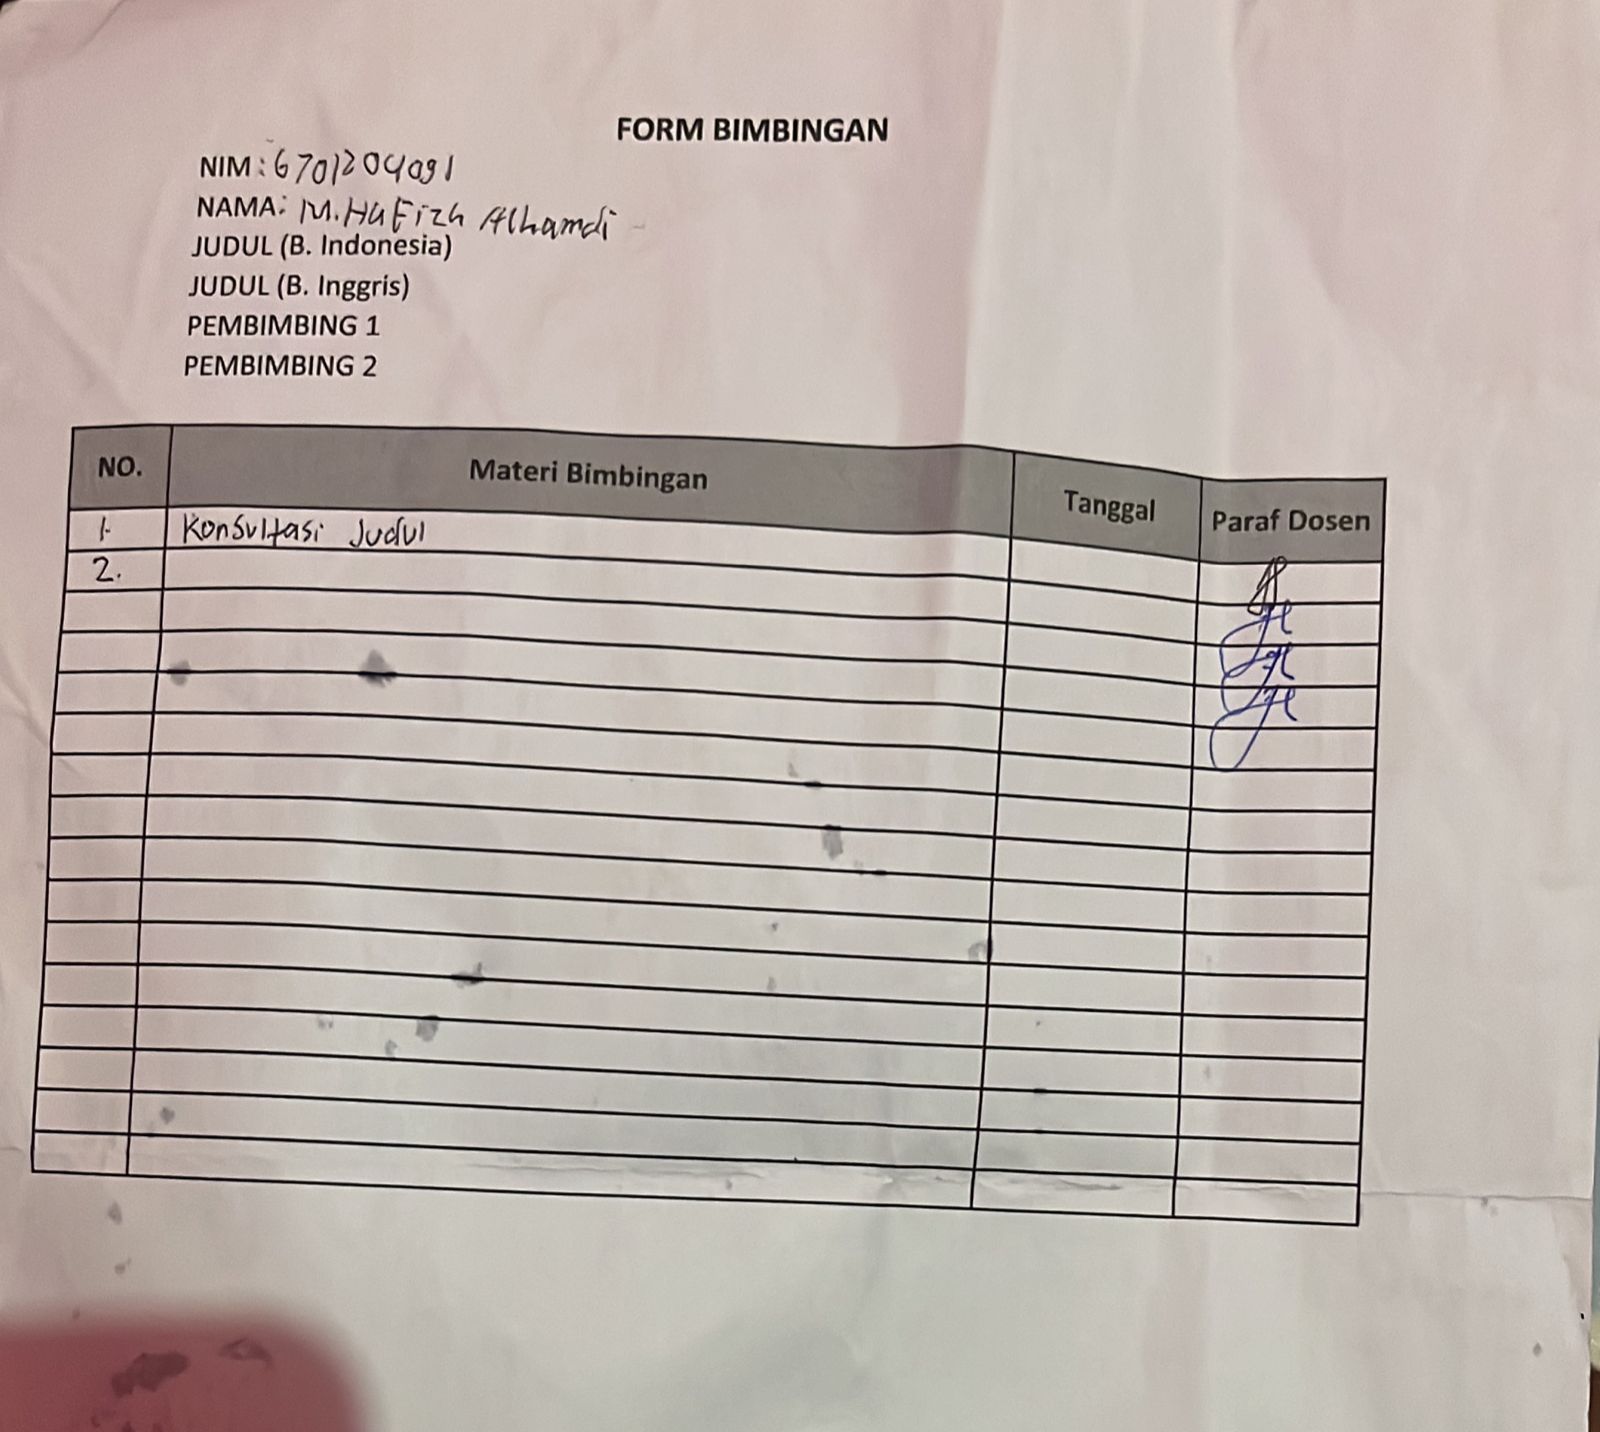 FORM BIMBINGAN
NIM : 6701204091
NAMA: M. Hafizh Alhamdi
JUDUL (B. Indonesia)
JUDUL (B. Inggris)
PEMBIMBING 1
PEMBIMBING 2
NO. Materi Bimbingan Tanggal Paraf Dosen
1. Konsultasi Judul
2.